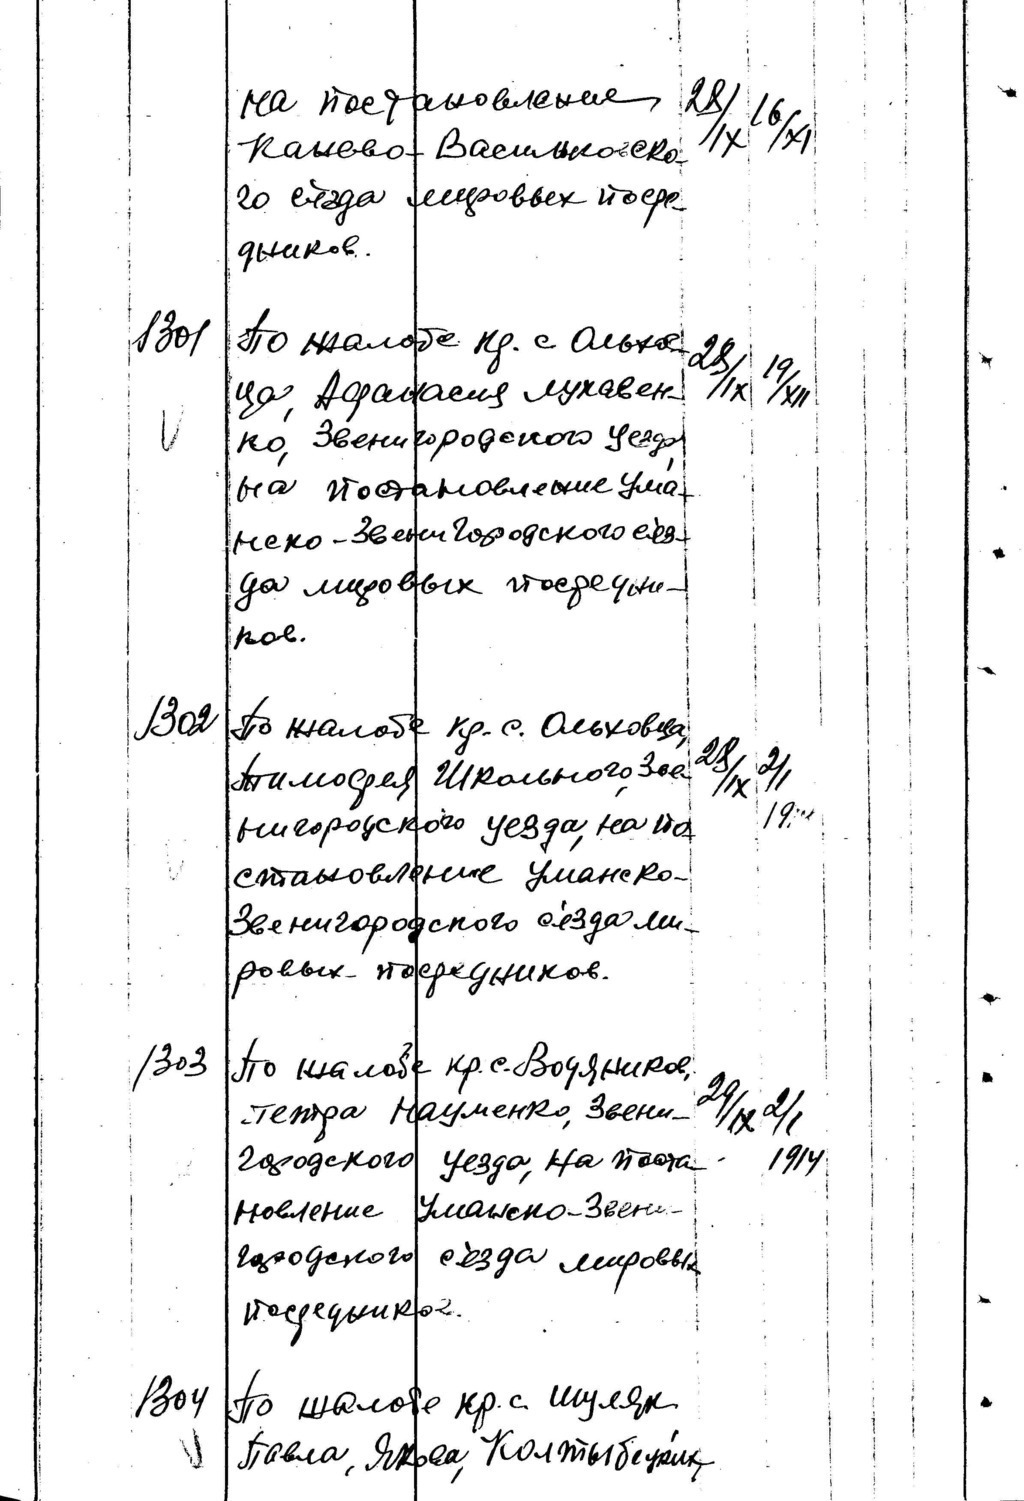 на постановление 28/IX 16/XI
Канево-Васильковско-
го с'езда мировых посре-
дников.
1301 По жалобе кр. с Ольхов-
ца, Афанасия Лукавен- 28/IX 19/XII
ко, Звенигородского уезда,
на постановление Ума-
нско-Звенигородского с'ез-
да мировых посредни-
ков.
1302 По жалобе кр. с. Ольховца,
Тимофея Школьного, Зве- 28/IX 2/I
нигородского уезда, на по 19
становление Уманско-
Звенигородского с'езда ми-
ровых посредников.
1303 По жалобе кр. с. Водяников,
Петра Науменко, Звени- 29/IX 2/I
городского уезда, на поста- 1914
новление Уманско-Звени-
городского с'езда мировых
посредников.
1304 По жалобе кр. с. Шуляк
Павла, Якова,